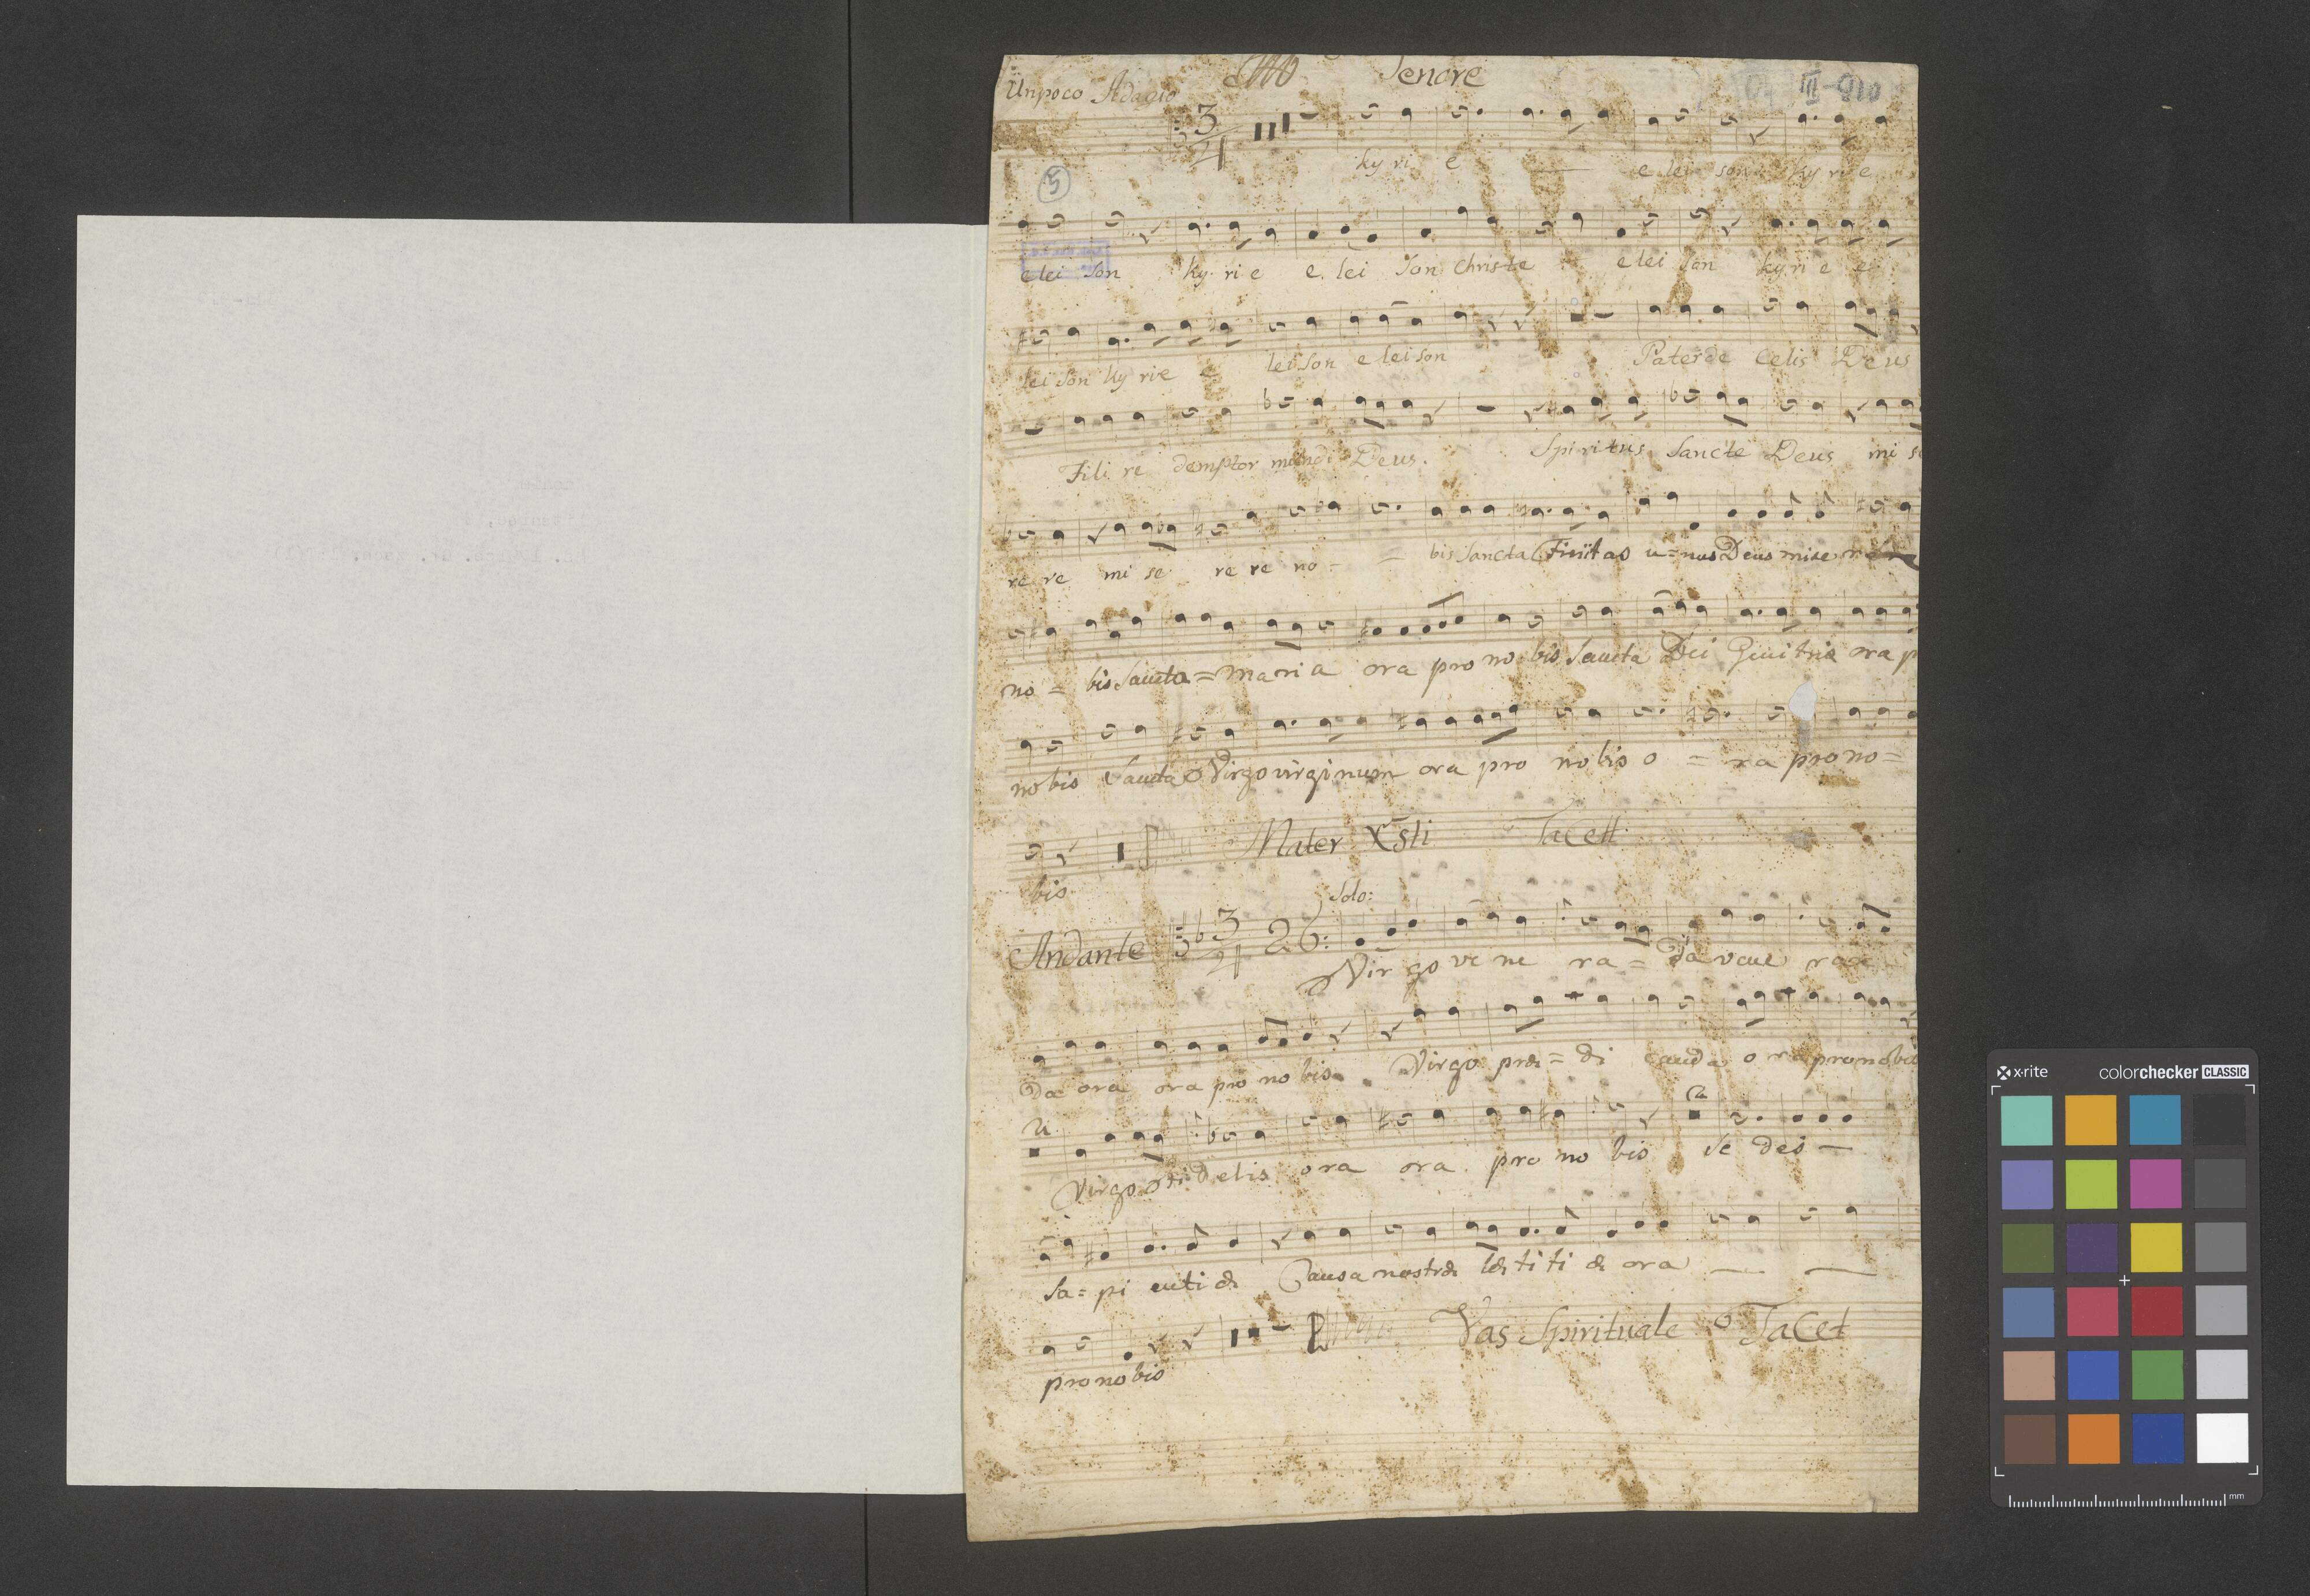 Tenore
III-810
Un poco Adagio
3/4
ky ri e — e lei son ky ri e
5
e lei son ky ri e e lei son Christe e lei son ky ri e e
lei son ky rie e lei son e lei son Pater de Celis Deus
Fili re demptor mundi Deus. Spiritus Sancte Deus mi se
re re mi se re re no = = bis Sancta Trinitas u=nus Deus mise re re
no = bis Sancta = maria ora pro no bis Sancta Dei Genitrix ora p
nobis Sancta Virgo virginum ora pro nobis o = ra pro no =
Mater Xsti Tacett
bis
Solo:
Andante 3/4 26:
Virgo vene ra = da vene ran
da ora ora pro no bis Virgo præ = di canda o ra pro nobis
Virgo fidelis ora ora pro no bis Se des —
Sa = pi enti æ Causa nostræ læ ti ti æ ora — —
Vas Spirituale Tacet
pro no bis
x·rite colorchecker CLASSIC
mm